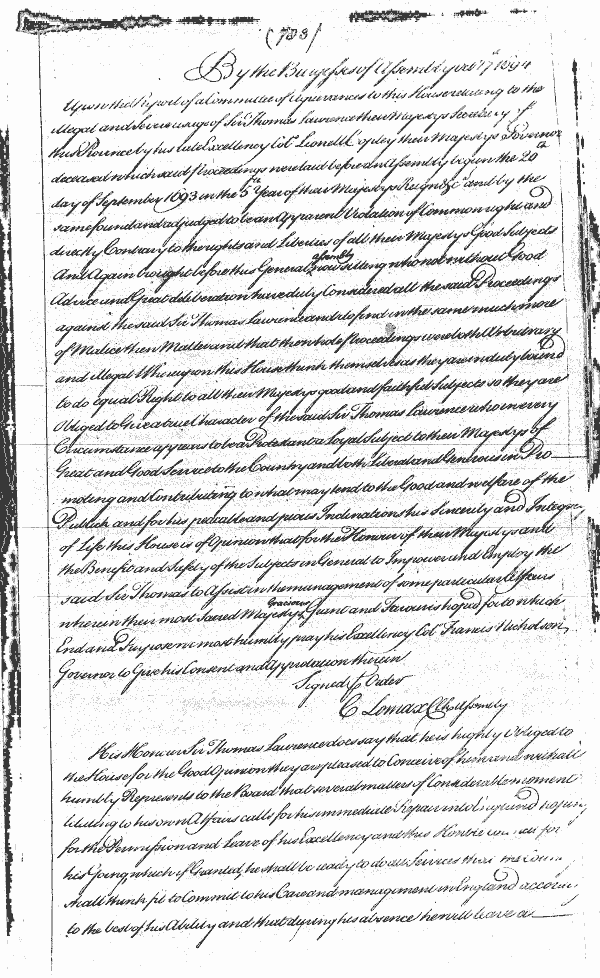 (733)
By the Burgesses of Assembly Octr 17th 1694
Upon the Report of a Committee of Agrievances to this House relating to the
illegal and Severe usage of Sir Thomas Lawrence their Majestys Secretary of
this Province by his late Excellency Col Lionell Copley their Majestys Governor
deceased which said Proceedings were laid before an Assembly begun the 20th
day of September 1693 in the 5th Year of their Majestys Reign &c and by the
same found and adjudged to be an Apparent Violation of Common right and
directly Contrary to the rights and Liberties of all their Majestys Good Subjects
And Again brought before this General Assembly now sitting who not without Good
Advice and Great deliberation have duly Considered all the said Proceedings
against the said Sir Thomas Lawrence and do find in the same much more
of Malice then Matter and that the whole Proceedings were both Arbitrary
and illegal Whereupon this House think themselves as they are in duty bound
to do Equal Right to all their Majestys good and faithful Subjects so they are
Obliged to Give a true Character of the said Sir Thomas Lawrence who in every
Circumstance appears to be a Protestant a Loyal Subject to their Majestys of
Great and Good Service to the Country and both Liberal and Generous in Pro
moting and Contributing to what may tend to the Good and welfare of the
Publick and for his peaceable and pious Inclinations his Sincerity and Integrity
of Life this House is of Opinion that for the Honour of their Majestys and
the Benefit and Safety of the Subjects in General to Impower and Employ the
said Sir Thomas to Assist in the management of some particular Affairs
wherein their most Sacred Majestys Gracious Grant and Favour is hoped for to which
End and Purpose we most humbly pray his Excellency Col Francis Nicholson
Governor to Give his Consent and Approbation therein
Signed p Order
C Lomax Cl Assembly
His Honour Sir Thomas Lawrence does say that he is highly Obliged to
the House for the Good Opinion they are pleased to Conceive of him and withall
humbly Represents to the Board that several matters of Considerable moment
relating to his own Affairs calls for his immediate Repair into England hoping
for the Permission and Leave of his Excellency and this Honble for
his Going, which if Granted he shall be ready to do all Services
shall think fit to Commit to his Care and management in England
to the best of his Ability and that during his absence he will leave a